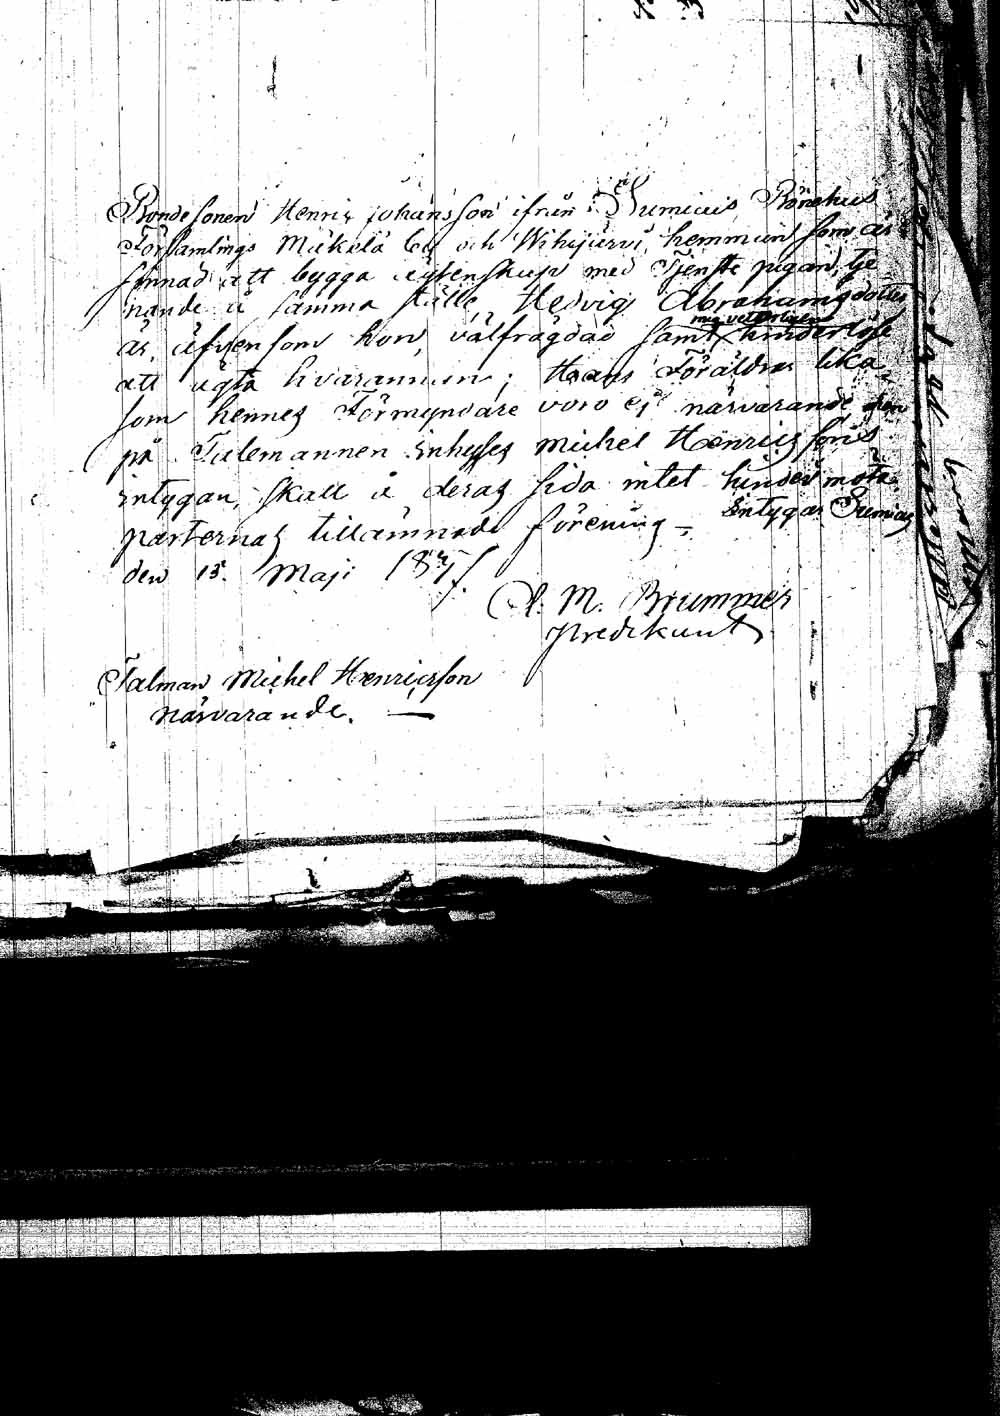 Bonde sonen Henric Johansson ifrån Sumiais Bönehus
Församlings Mäkelä by och Wihijärvi hemman som är
sinnad att bygga ägtenskap med Tjenste pigan, tje
nande å samma ställe, Hedvig Abrahamsdotter
mig veterligen
är, äfvensom hon, välfrägdad samt hinderlöse
att ägta hvarannan; Hans Föräldrar lika
som hennes Förmyndare voro ej närvarande men
på Talemannen Inhyses Michel Henricssons
intygan, skall å deras sida intet hinder möta
parternas tillämnade förening – Intygar Sumiais
den 13 Maji 1847.
A. M. Brummer
Predikant
Talman Michel Henricsson
närvarande. —